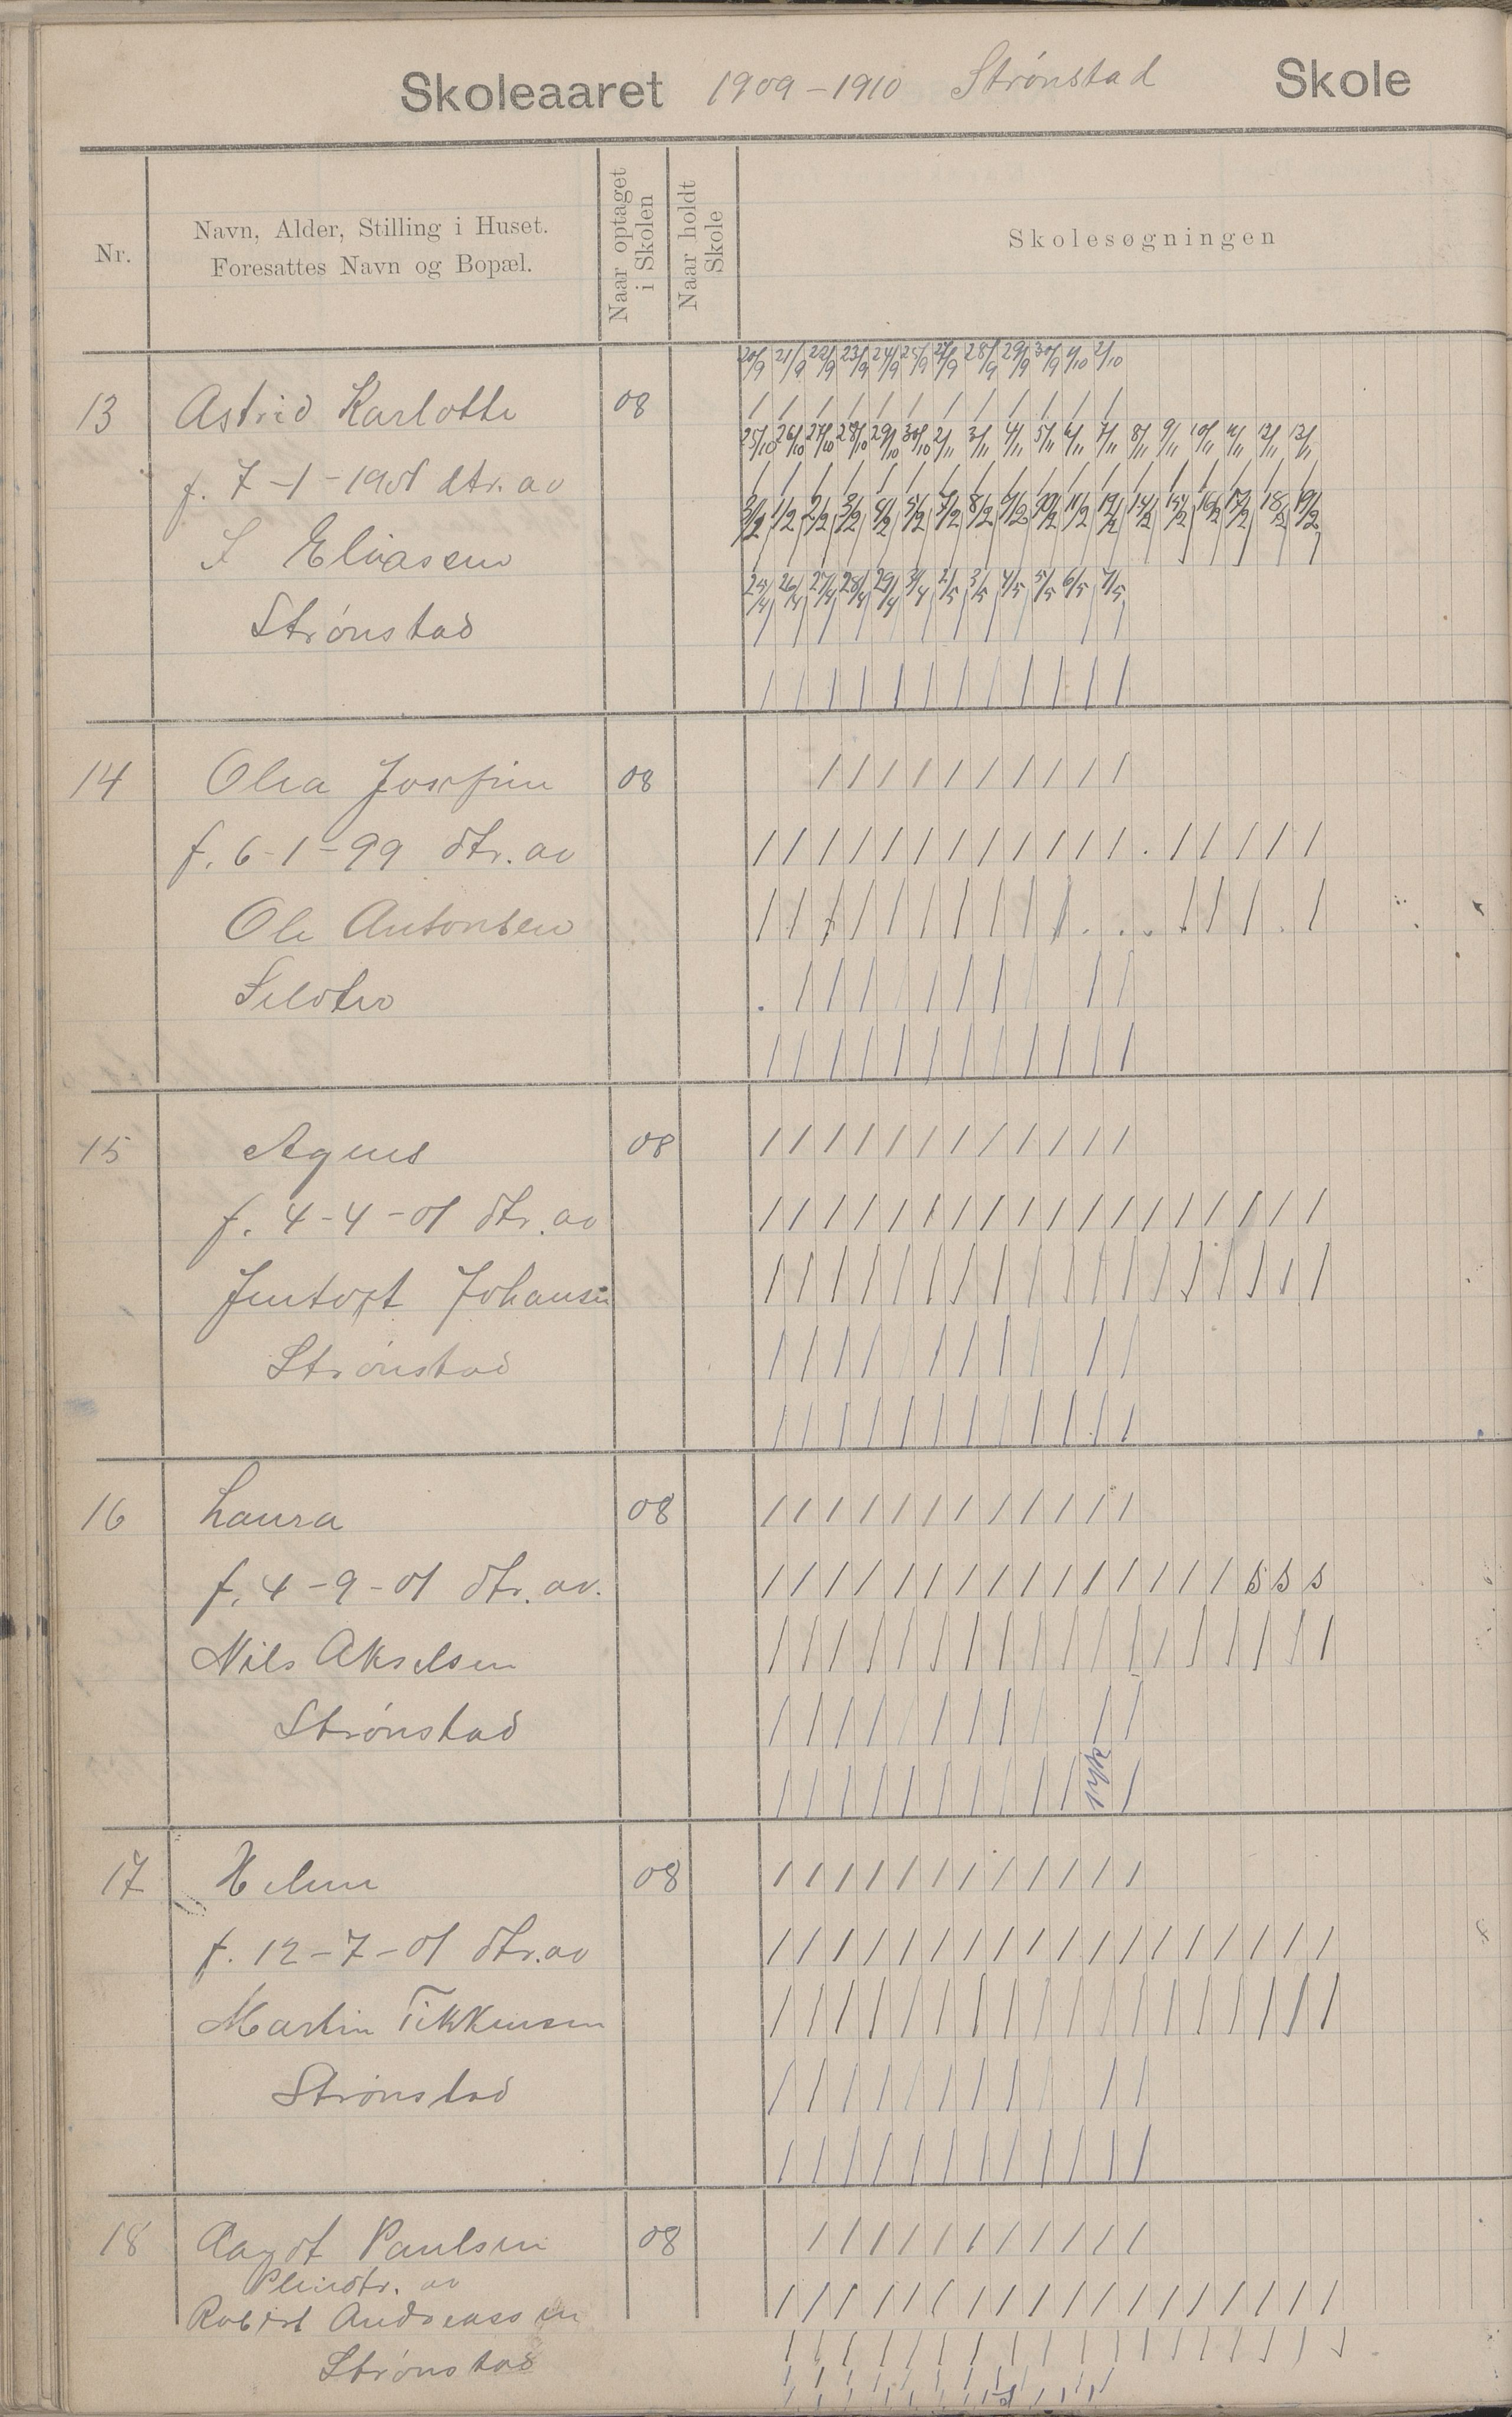 Skoleaaret 1909-1910 Strønstad Skole
Nr.
Navn, Alder, Stilling i Huset.
Foresattes Navn og Bopæl.
Naar optaget
i Skolen
Naar holdt
Skole
Skolesøgningen
20/9 21/9 22/9 23/9 24/9 25/9 27/9 28/9 29/9 30/9 1/10 2/10
13 Astrid Karlotte 08
25/10 26/10 27/10 28/10 29/10 30/10 2/11 3/11 4/11 5/11 6/11 7/11 8/11 9/11 10/11 11/11 12/11 13/11
f. 7-1-1901 dtr. av
31/1 1/2 2/2 3/2 4/2 5/2 7/2 8/2 9/2 10/2 11/2 12/2 14/2 15/2 16/2 17/2 18/2 19/2
Eliasen
25/4 26/4 27/4 28/4 29/4 3/4 2/5 3/5 4/5 5/5 6/5 7/5
Strønstad
14 Olea Josefine 08
f. 6-1-99 dtr. av
Ole Antonsen
15 Agnes 08
f. 4-4-01 dtr. av
Johansen
Strønstad
16 Laura 08
f. 4-9-01 dtr. av.
s s s
Nils Akselsen
Strønstad
17 Helene 08
f. 12-7-01 dtr. av
Martin Tikkensen
Strønstad
18 Aagot Paulsen 08
Pleiedtr. av
Robert Andreassen
Strønstad